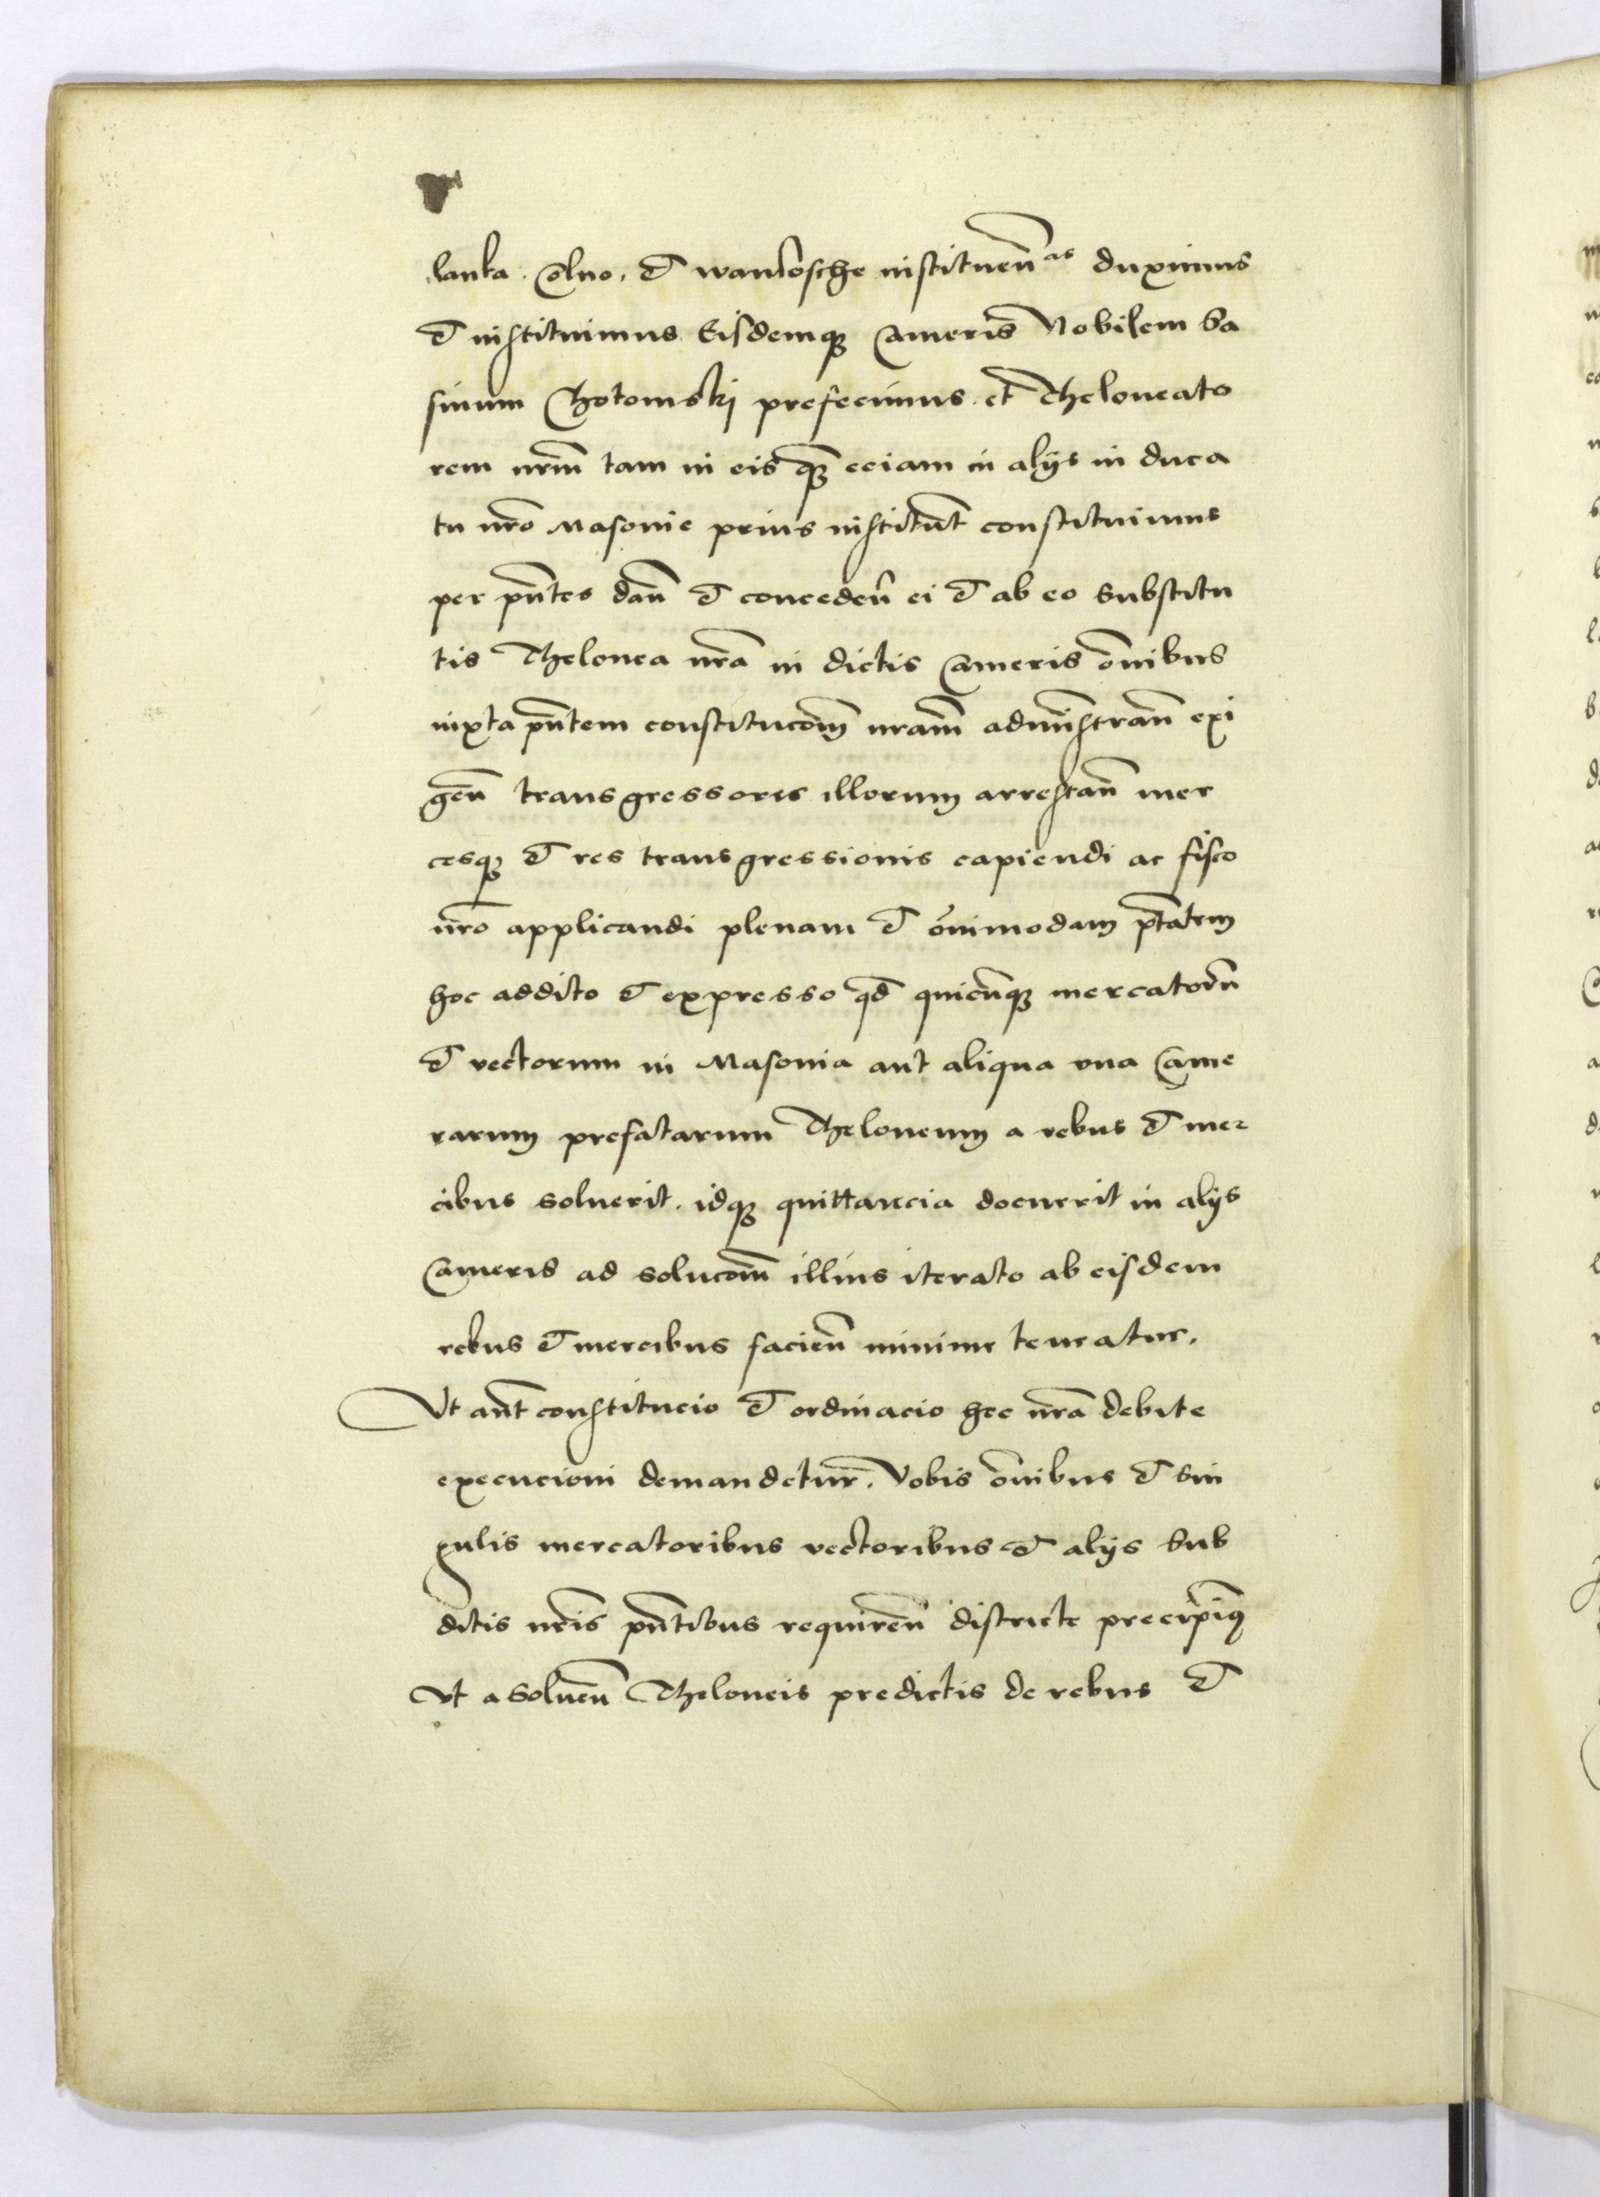 lanka. Colno. et wansosche instituen̄as duximus
et instituimus Eisdemq̃ Cameris Nobilem Sa
sinum Chotomski prefecimus. et Theloneato
rem nr̄m tam in eis q̃ȝ eciam in alijs in duca
tu nr̄o Masouie prius institut̄ constituimus
per pn̄tes dan̄ et conceden̄ ei et ab eo substitu
tis Thelonea nr̄a in dictis Cameris om̄ibus
iuxta pn̄tem constitucōm nr̄am adminīstran̄ exi
gen̄ transgressores illorum arrestan̄ mer
cesq̃ et res transgressionis capiendi ac fisco
nr̄o applicandi plenam et om̄imodam ptātem
hoc addito et expresso qd̄ quicunq̃ mercatorū
et vectorum in Masouia aut aliqua vna Came
rarum prefatarum Theloneum a rebus et mer
cibus soluerit. idq̃ quittancia docuerit in alijs
Cameris ad solucōm illius iterato ab eisdem
rebus et mercibus facien̄ minime teneatur.
Vt aūt constitucio et ordinacio hec nr̄a debite
execucioni demandetur. Vobis om̄ibus et sin
gulis mercatoribus vectoribus et alijs Sub
ditis nr̄is pn̄tibus requiren̄ districte precipimꝰ
Vt a soluen̄ Theloneis predictis de rebus et